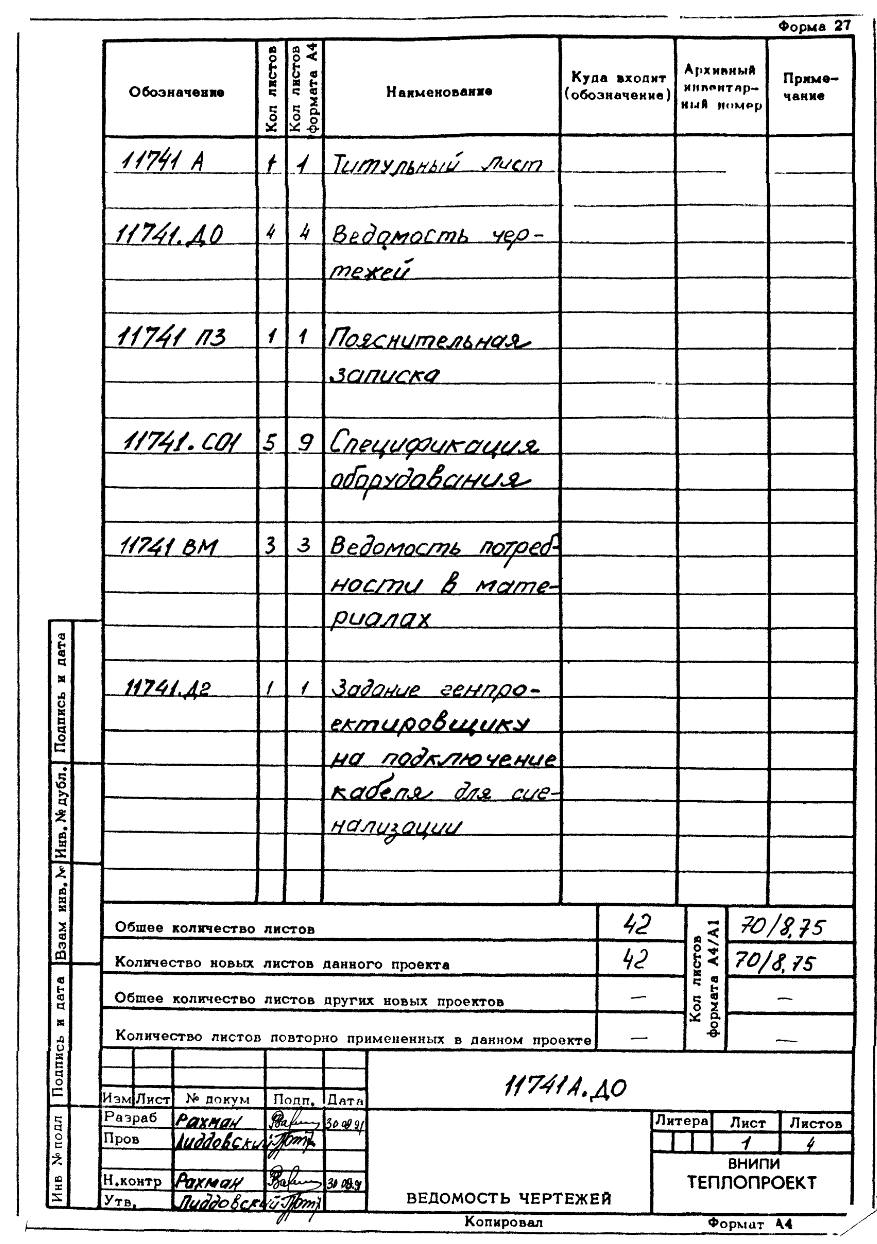 Форма 27
Обозначение
Кол листов
Кол листов формата А4
Наименование
Куда входит (обозначение)
Архивный инвентарный номер
Приме-
чание
11741 А 1 1 Титульный лист
11741.ДО 4 4 Ведомость чер-
тежей
11741 ПЗ 1 1 Пояснительная
записка
11741.СО1 5 9 Спецификация
оборудования
11741 ВМ 3 3 Ведомость потреб-
ности в мате-
риалах
11741.Д2 1 1 Задание генпро-
ектировщику
на подключение
кабеля для сиг-
нализации
Общее количество листов 42 70/8,75
Количество новых листов данного проекта 42 70/8,75
Общее количество листов других новых проектов — —
Количество листов повторно примененных в данном проекте — —
Кол листов
формата А4/А1
Подпись и дата
Инв. № дубл.
Взам инв. №
Подпись и дата
Инв № подл
11741А.ДО
Изм Лист № докум Подп. Дата
Разраб Рахман 30.08.91
Пров Лиддовский
Н.контр Рахман 30.08.91
Утв. Лиддовский
ВЕДОМОСТЬ ЧЕРТЕЖЕЙ
Литера Лист Листов
1 4
ВНИПИ
ТЕПЛОПРОЕКТ
Копировал Формат А4